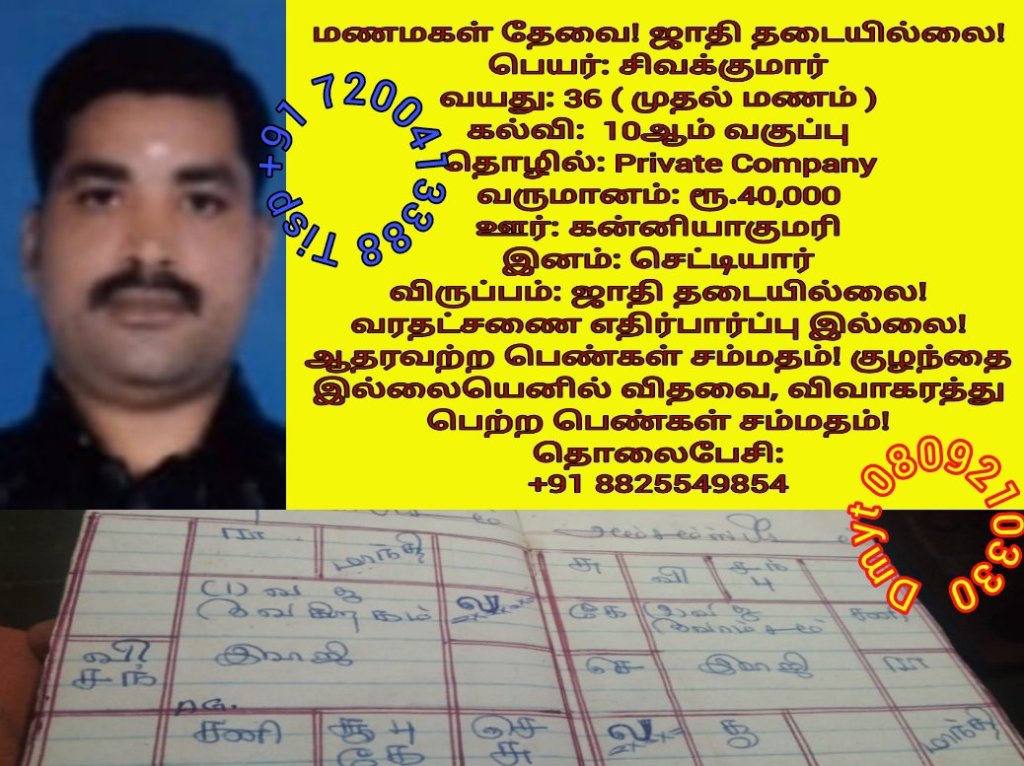 மணமகள் தேவை! ஜாதி தடையில்லை!
பெயர்: சிவக்குமார்
வயது: 36 ( முதல் மணம் )
கல்வி: 10ஆம் வகுப்பு
தொழில்: Private Company
வருமானம்: ரூ.40,000
ஊர்: கன்னியாகுமரி
இனம்: செட்டியார்
விருப்பம்: ஜாதி தடையில்லை!
வரதட்சணை எதிர்பார்ப்பு இல்லை!
ஆதரவற்ற பெண்கள் சம்மதம்! குழந்தை
இல்லையெனில் விதவை, விவாகரத்து
பெற்ற பெண்கள் சம்மதம்!
தொலைபேசி:
+91 8825549854
Tisp +91 7200413388
Dmyt 0809210330
ரா மாந்தி
சு வி சந் பு
ல
கே
சனி
வி
சந்
இராஜி
செ இராஜி ரா
சனி
கு பு
கே
செ
சு
ல கு மாந்தி